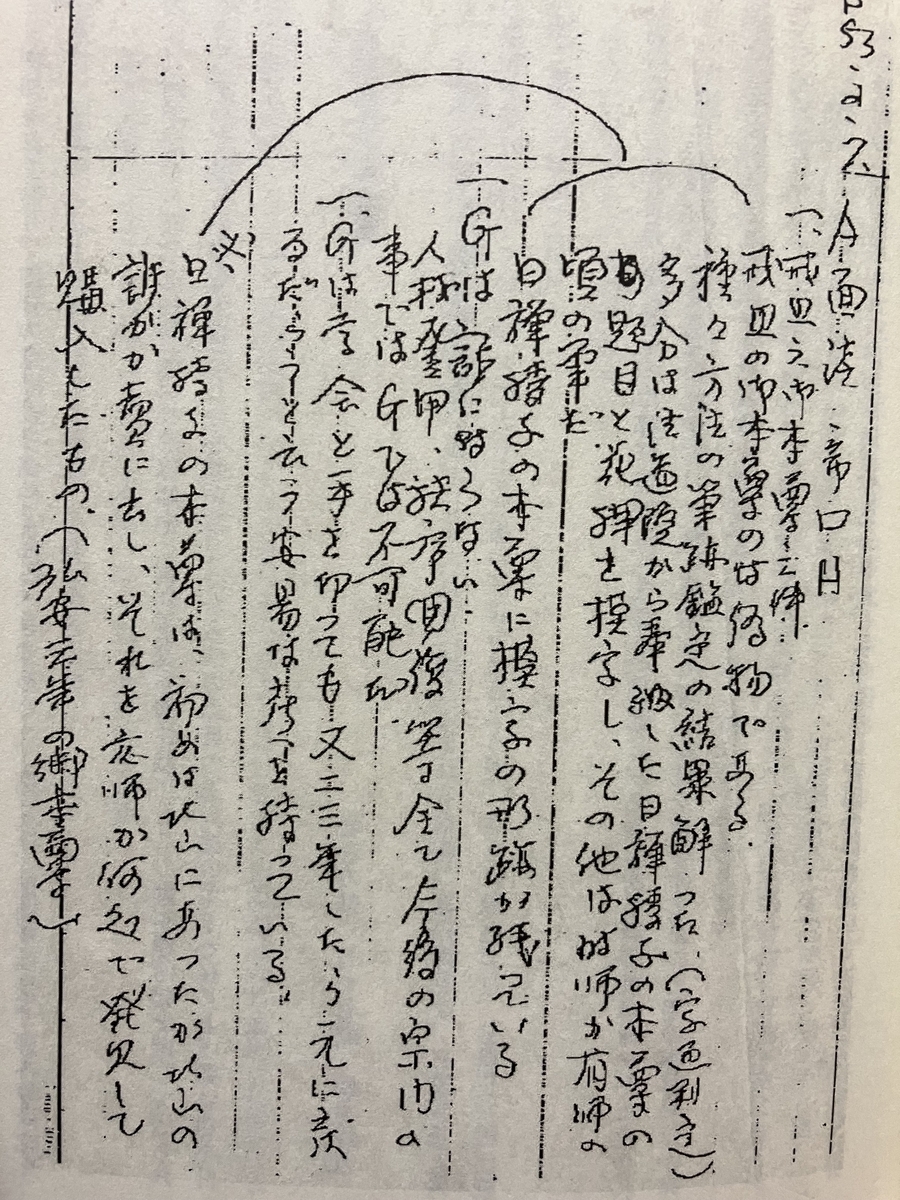 S53.2.7、A面談、帝口H
一、戒旦之御本尊之件
戒旦の御本尊のは偽物である。
種々方法の筆跡鑑定の結果解った。(字画判定)
多分は法道院から奉納した日禅授与の本尊の
題目と花押を模写し、その他は時師か有師の
頃の筆だ
日禅授与の本尊に模写の形跡が残っている
一、Gは話にならない
人材登用、秩序回復等全て今後の宗内の
事ではGでは不可能だ。
一、Gは学会と手を切っても又二三年したら元に戻
るだろうと云う安易な考へを持っている。
※日禅授与の本尊は、初めは北山にあったが北山の
誰かが売に出し、それを応師が何処で発見して
購入したもの。(弘安三年の御本尊)